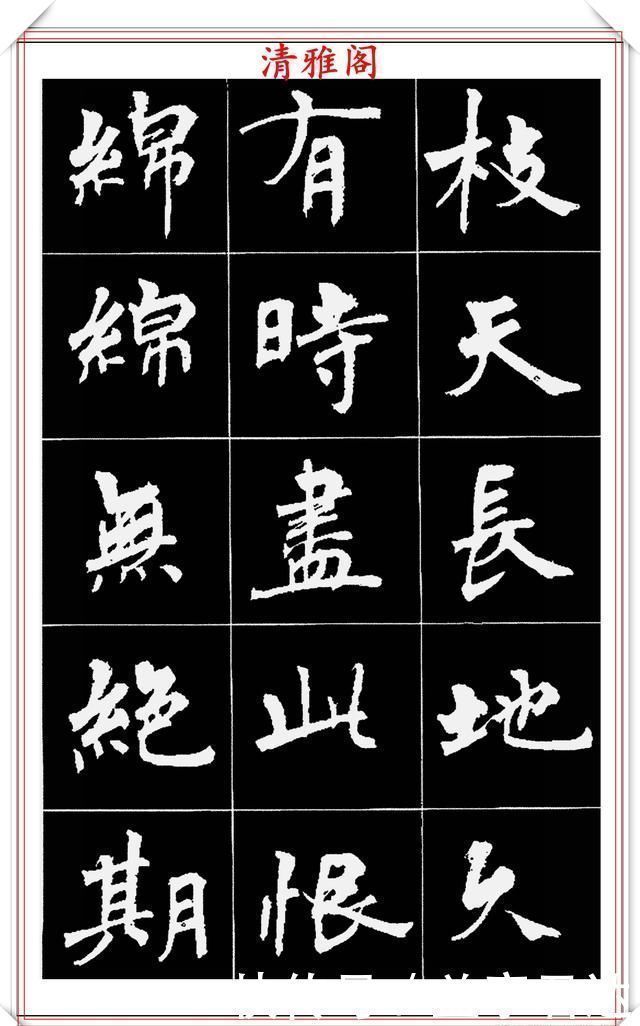 清雅阁
枝天長地久
有時盡此恨
綿綿無絕期